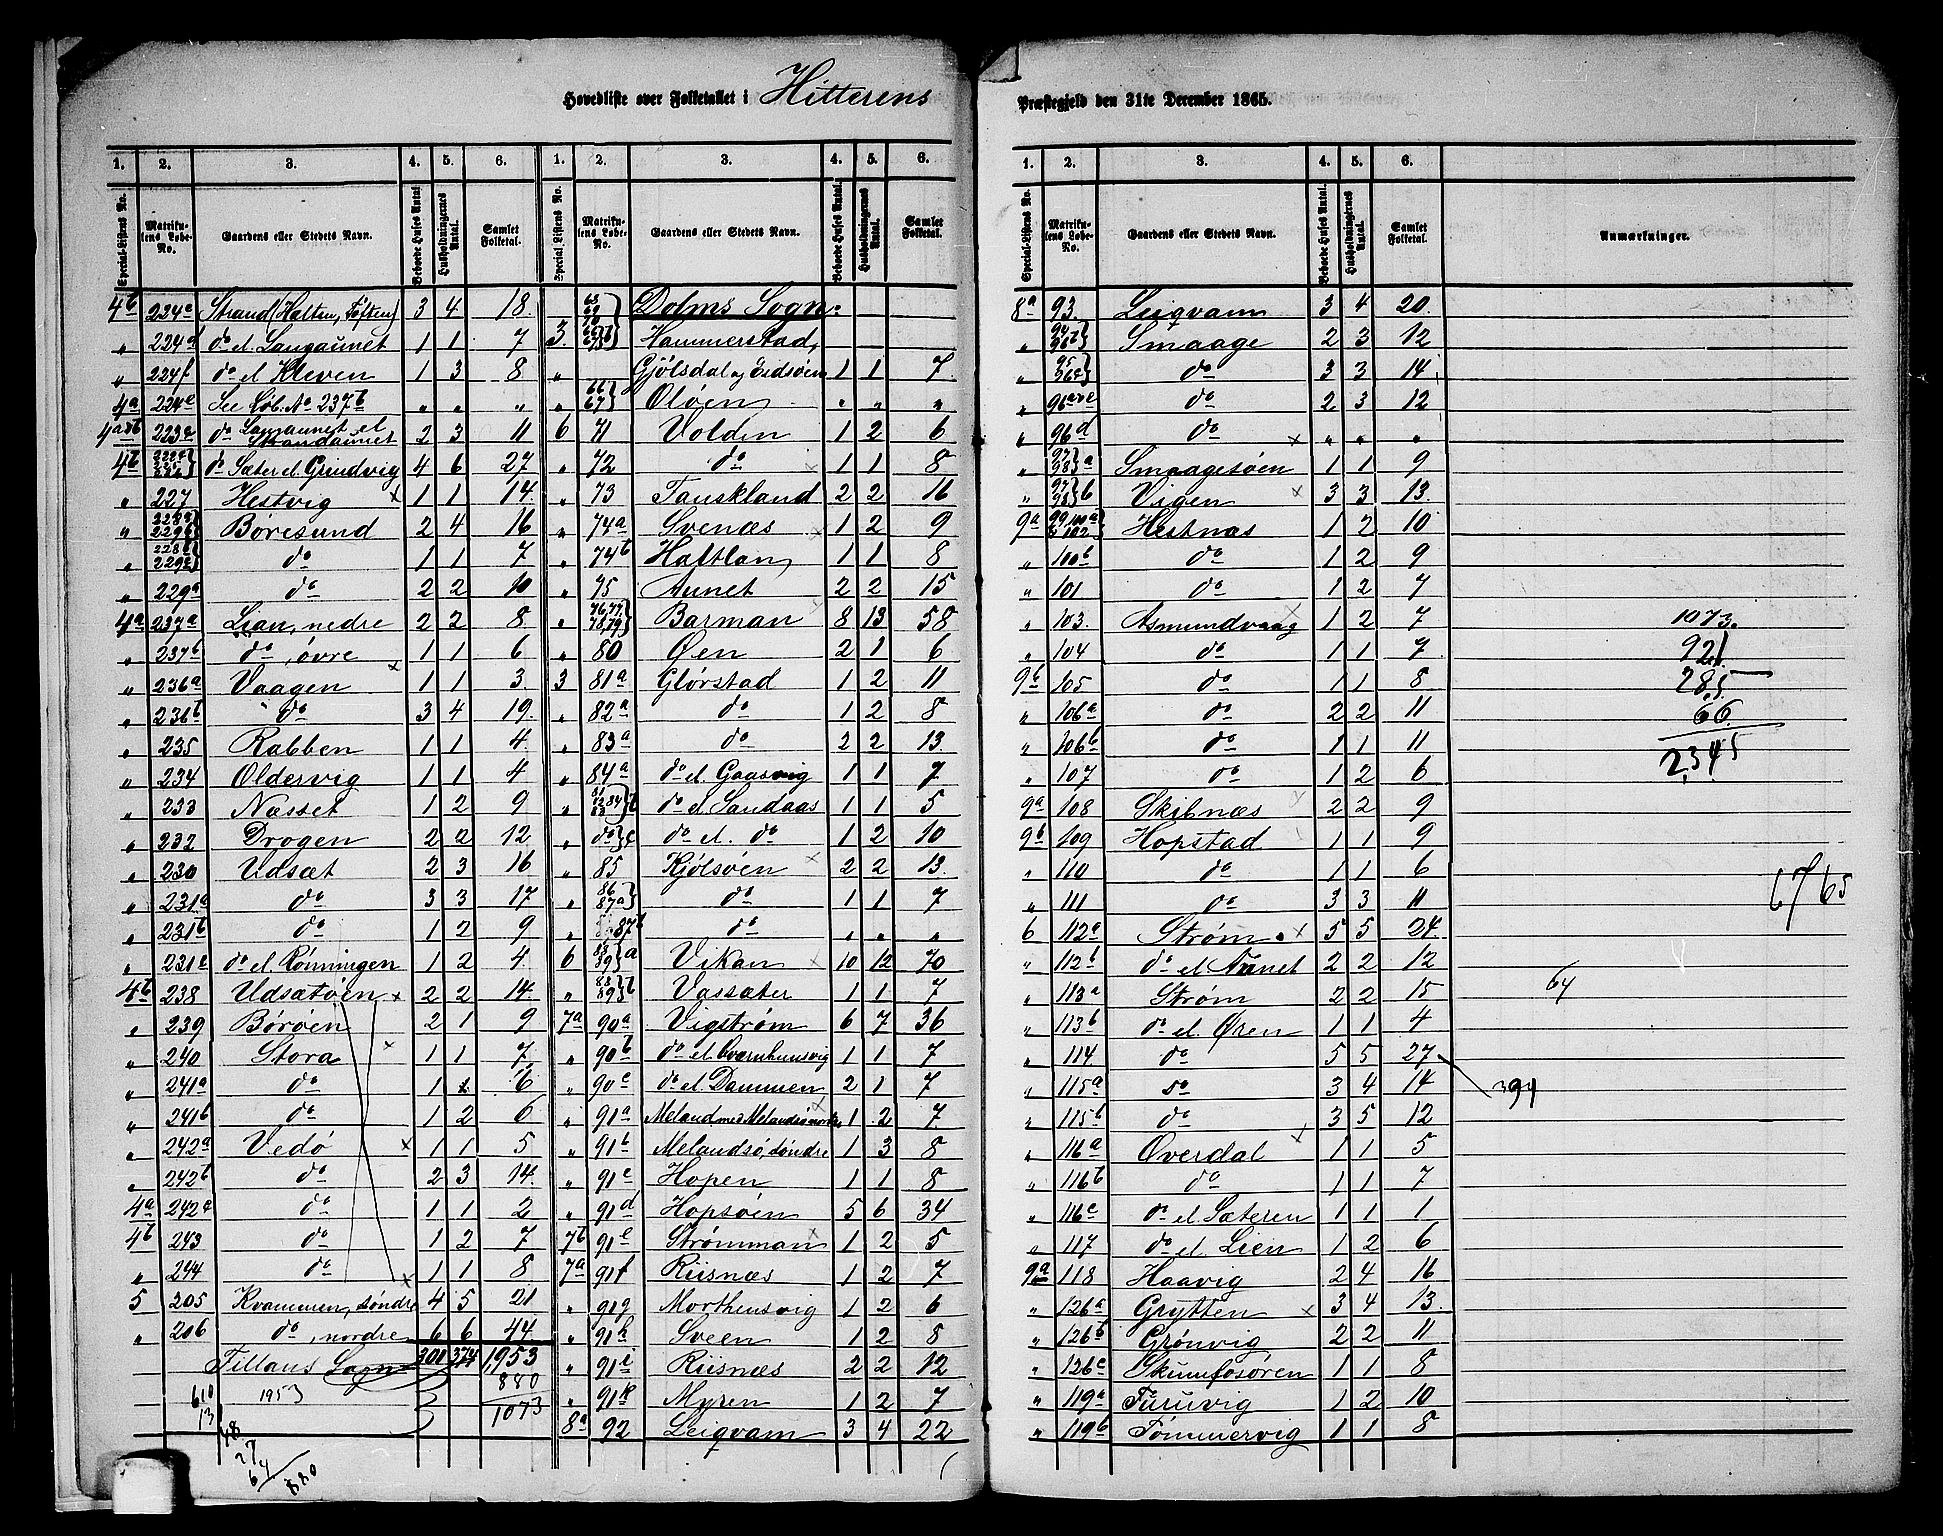 Hovedliste over Folketallet i Hitterens Præstegjeld den 31te December 1865.
1. 2. 3. 4. 5. 6. 1. 2. 3. 4. 5. 6.
Special-Listens No. Matrikulens Løbe-No. Gaardens eller Stedets Navn. Beboede Huses Antal. Husholdningernes Antal. Samlet Folketal. Special-Listens No. Matrikulens Løbe-No. Gaardens eller Stedets Navn. Beboede Huses Antal. Husholdningernes Antal. Samlet Folketal.
4b 224c Strand (Halten, Töften) 3 4 18.
" 224d do el. Langaunet 1 1 7
" 224f do el. Kleven 1 3 8
4a 224e See Löb. No 237b " " "
4a&b 223c do Langaunet el. Strandaunet 2 3 11
4b do Sæter el. Grindvig 4 6 27
" 227 Hestvig × 1 1 14.
" 228a 229b Børesund 2 4 16
" 228b 229c do 1 1 7
" 229a do 2 2 10
4a 237a Lian, nedre 2 2 8
" 237b do, övre × 1 1 6
" 236a Vaagen 1 1 3
" 236b do 3 4 19.
" 235 Rabben 1 1 4.
" 234 Oldervig 1 1 4
" 233 Næsset 1 2 9
" 232 Drogen 2 2 12
" 230 Udsæt 2 3 16
" 231a do 3 3 17
" 231b do 1 2 9
" 231c do el. Rönningen 1 2 4
4b 238 Udsætöen × 2 2 14.
" 239 Böröen 2 1 9
" 240 Stora × 1 1 7
" 241a do 1 1 6
" 241b do 1 2 6
" 242a Vedö × 1 1 5
" 242b do 2 3 14.
4a 242c do 1 1 2
4b 243 do 1 2 7
" 244 do × 1 1 8
5 205 Kvammen, söndre 4 5 21
" 206 do, nordre 6 6 44
Fillans Sogn 301 374 1953
880
1073
1953
610
13
48
27
64
880
Dolms Sogn.
3. Hammerstad,
" Gjölsdal og Eidsöen 1 1 7.
66 67 Olöen " " "
6 71 Volden 1 2 6
" 72 do 1 1 8
" 73 Fauskland 2 2 16
" 74a Svenæs 1 2 9
" 74b Haltlan, 1 1 8
" 75 Aunet 2 2 15
" 76,77 78,79 Barman 8 13 58
" 80 Øen 2 1 6
3 81a Glørstad 1 2 11
" 82a do 1 2 8
" 83a do 2 2 13.
" 84a do el. Gaasvig 1 1 7
" do el. Sandaas 1 1 5
" do c do el. do 1 2 10
" 85 Kjölsöen × 2 2 13.
" 86 87a do 1 1 7
" 87b do " " "
6 88 89 a Vikan × 10 12 70
" 88 89 b Vassæter 1 1 7
7a 90a Vigström 6 7 36
" 90b do el. Kværnhusvig 1 1 7
" 90c do el. Dammen 2 1 7
" 91a Meland med Melandsö nordre 1 2 7
" 91b Melandsö, söndre 1 3 8
" 91c Hopen 1 1 8
" 91d Hopsöen 5 6 34
7b 91e Strømman × 1 2 5
7a 91f Riisnæs 1 2 7
" 91g Morthensvig 1 2 6
" 91h Sveen 1 2 8
" 91i Riisnæs 2 2 12
" 91k Myren 1 2 7
8a 92 Leiqvam 3 4 22
1. 2. 3. 4. 5. 6.
Special-Listens No. Matrikulens Løbe-No. Gaardens eller Stedets Navn. Beboede Huses Antal. Husholdningernes Antal. Samlet Folketal. Anmærkninger.
8a 93. Leiqvam 3 4 20.
" 94 96b Smaage 2 3 12
" 95 96c do 3 3 14
" do 2 3 12
" 96d do × " " "
" 97 98 a Smaagesöen 1 1 9
" 97 98 b Vigen × 3 3 13.
9a 99, 100a & 102 Hestnæs 1 2 10
" 100b do 1 2 9
" 101 do 1 2 7
" 103. Asmundvaag 1 2 7 1073.
" 104 do 1 1 7 921.
9b 105 do 1 1 8 285.
" 106a do 2 2 11 66.
" 106b do 1 1 11 2345
" 107 do 1 2 6
9a 108 Skibnæs × 2 2 9
9b 109 Hopstad 1 1 9
" 110 do 1 1 6
" 111 do 3 3 11
6 112a Strøm. × 5 5 24.
" 112b do el. Aunet 2 2 12
" 113a Strøm 2 2 15 64
" 113b do el. Øren 1 1 4
" 114. do 5 5 27
" 115a do 3 4 14 394
" 115b do 3 5 12
" 116a Øverdal × 1 1 5
" 116b do 1 1 7
" 116c do el. Sæteren 1 1 1
" 117 do el. Lien 1 2 6
9a 118 Haavig 2 4 16
" 126a Grytten × 3 4 13.
" 126b Grønvig 2 2 11
" 126c Skumfosøren 1 1 8
" 119a Furuvig 1 2 10
" 119b Tømmervig 1 1 8